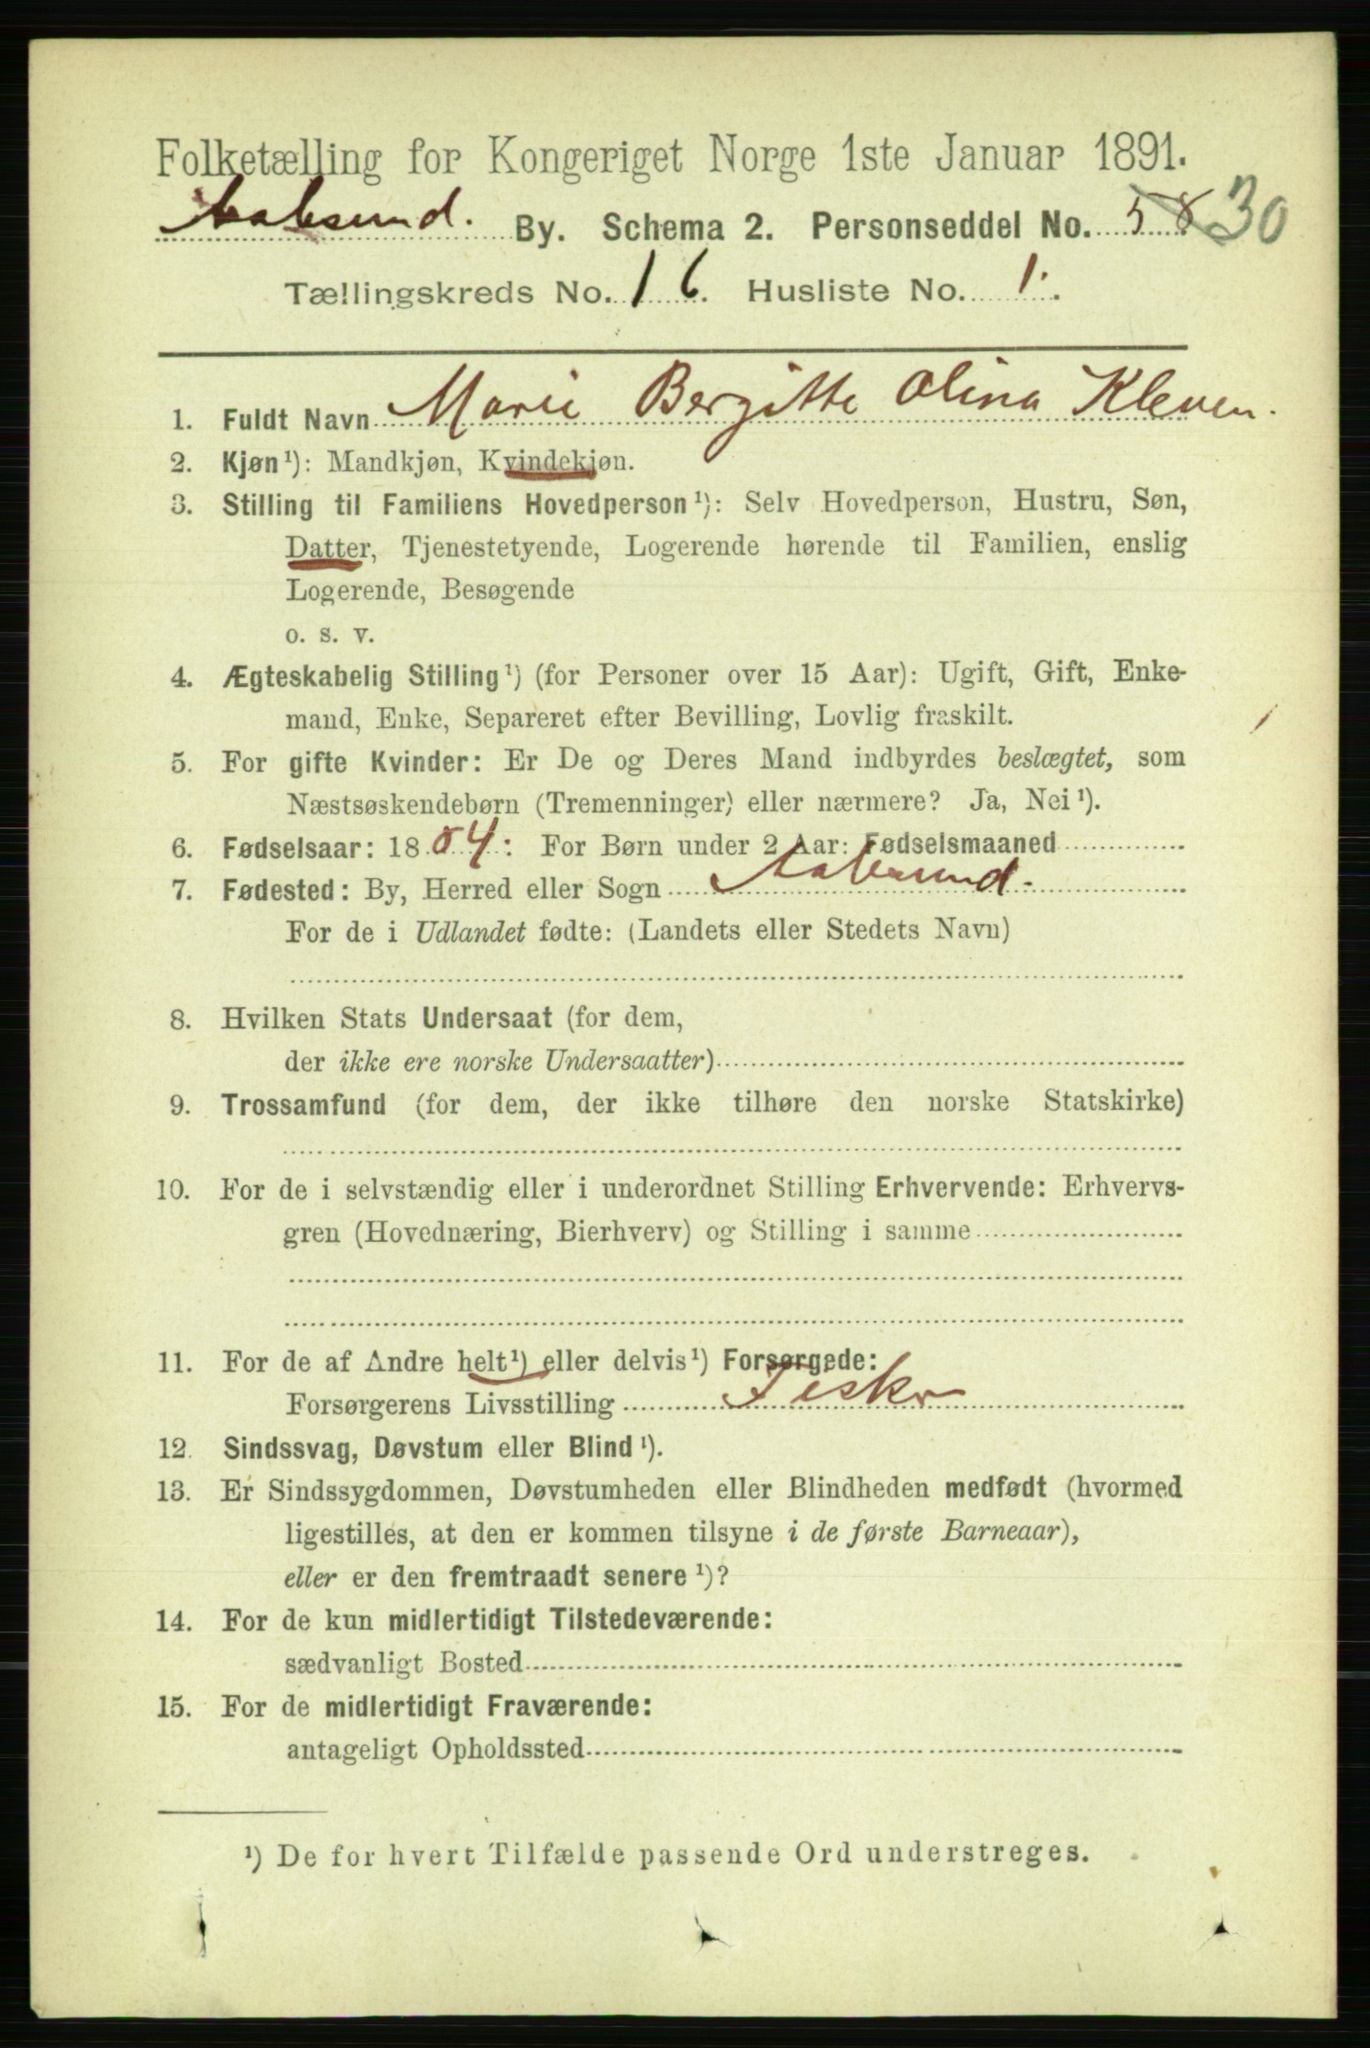 Folketælling for Kongeriget Norge 1ste Januar 1891.
Aalesund. By. Schema 2. Personseddel No. 58 30
Tællingskreds No. 16. Husliste No. 1.
1. Fuldt Navn Marie Bergitte Olina Kleven.
2. Kjøn¹): Mandkjøn, Kvindekjøn.
3. Stilling til Familiens Hovedperson¹): Selv Hovedperson, Hustru, Søn,
Datter, Tjenestetyende, Logerende hørende til Familien, enslig
Logerende, Besøgende
o. s. v.
4. Ægteskabelig Stilling¹) (for Personer over 15 Aar): Ugift, Gift, Enke-
mand, Enke, Separeret efter Bevilling, Lovlig fraskilt.
5. For gifte Kvinder: Er De og Deres Mand indbyrdes beslægtet, som
Næstsøskendebørn (Tremenninger) eller nærmere? Ja, Nei¹).
6. Fødselsaar: 1884: For Børn under 2 Aar: Fødselsmaaned
7. Fødested: By, Herred eller Sogn Aalesund.
For de i Udlandet fødte: (Landets eller Stedets Navn)
8. Hvilken Stats Undersaat (for dem,
der ikke ere norske Undersaatter)
9. Trossamfund (for dem, der ikke tilhøre den norske Statskirke)
10. For de i selvstændig eller i underordnet Stilling Erhvervende: Erhvervs-
gren (Hovednæring, Bierhverv) og Stilling i samme
11. For de af Andre helt¹) eller delvis¹) Forsørgede:
Forsørgerens Livsstilling Fisker
12. Sindssvag, Døvstum eller Blind¹).
13. Er Sindssygdommen, Døvstumheden eller Blindheden medfødt (hvormed
ligestilles, at den er kommen tilsyne i de første Barneaar),
eller er den fremtraadt senere¹)?
14. For de kun midlertidigt Tilstedeværende:
sædvanligt Bosted
15. For de midlertidigt Fraværende:
antageligt Opholdssted
¹) De for hvert Tilfælde passende Ord understreges.